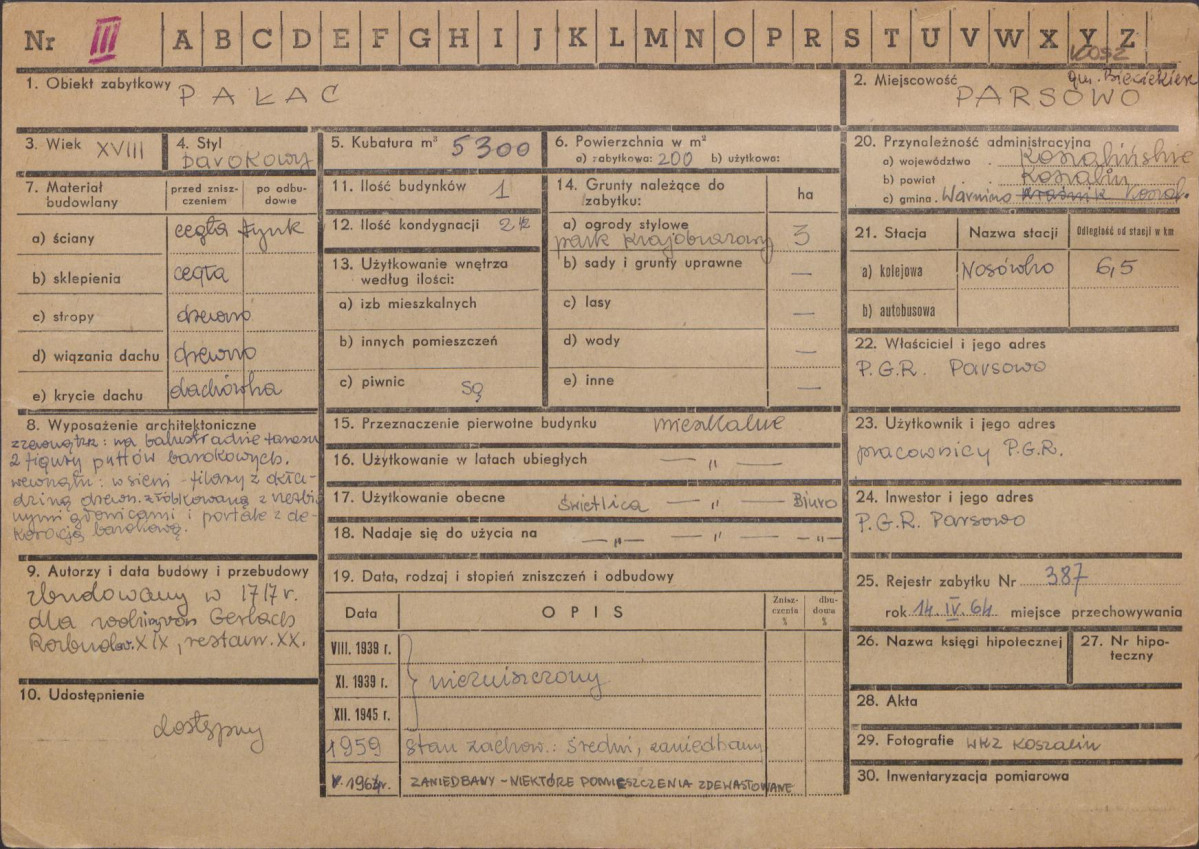 Nr III A B C D E F G H I J K L M N O P R S T U V W X Y Z
1. Obiekt zabytkowy PAŁAC
2. Miejscowość PARSOWO
gm. Biesiekierz
3. Wiek XVIII
4. Styl barokowy
5. Kubatura m³ 5300
6. Powierzchnia w m²
a) zabytkowa: 200 b) użytkowa:
7. Materiał budowlany
przed zniszczeniem
po odbudowie
a) ściany cegła tynk
b) sklepienia cegła
c) stropy drewno
d) wiązania dachu drewno
e) krycie dachu dachówka
8. Wyposażenie architektoniczne
zzewnątrz: na balustradzie tarasu
2 figury puttów barokowych.
wewnątrz: w sieni - filary z okła-
dziną drewn. żłóbkowaną z rzeźbio
nymi głowicami i portale z de-
koracją barokową.
9. Autorzy i data budowy i przebudowy
zbudowany w 1717 r.
dla rodziny von Gerlach
Rozbudow. XIX, restaur. XX.
10. Udostępnienie
dostępny
11. Ilość budynków 1
12. Ilość kondygnacji 2 ½
13. Użytkowanie wnętrza
według ilości:
a) izb mieszkalnych
b) innych pomieszczeń
c) piwnic są
14. Grunty należące do
zabytku:
ha
a) ogrody stylowe
park krajobrazowy 3
b) sady i grunty uprawne —
c) lasy —
d) wody —
e) inne —
15. Przeznaczenie pierwotne budynku mieszkalne
16. Użytkowanie w latach ubiegłych — „ —
17. Użytkowanie obecne świetlica — „ — Biuro
18. Nadaje się do użycia na — „ — „ — „ —
19. Data, rodzaj i stopień zniszczeń i odbudowy
Data OPIS Znisz-
czenia
% dbu-
dowa
%
VIII. 1939 r.
XI. 1939 r. niezniszczony
XII. 1945 r.
1959 stan zachow.: średni, zaniedbany
V. 1964r. ZANIEDBANY - NIEKTÓRE POMIESZCZENIA ZDEWASTOWANE
20. Przynależność administracyjna
a) województwo . koszalińskie
b) powiat . Koszalin
c) gmina . Warnino Kraśnik Koszal.
21. Stacja Nazwa stacji Odległość od stacji w km
a) kolejowa Nosówko 6,5
b) autobusowa
22. Właściciel i jego adres
P.G.R. Parsowo
23. Użytkownik i jego adres
pracownicy P.G.R.
24. Inwestor i jego adres
P.G.R. Parsowo
25. Rejestr zabytku Nr 387
rok 14. IV. 64. miejsce przechowywania
26. Nazwa księgi hipotecznej
27. Nr hipo-
teczny
28. Akta
29. Fotografie WKZ Koszalin
30. Inwentaryzacja pomiarowa